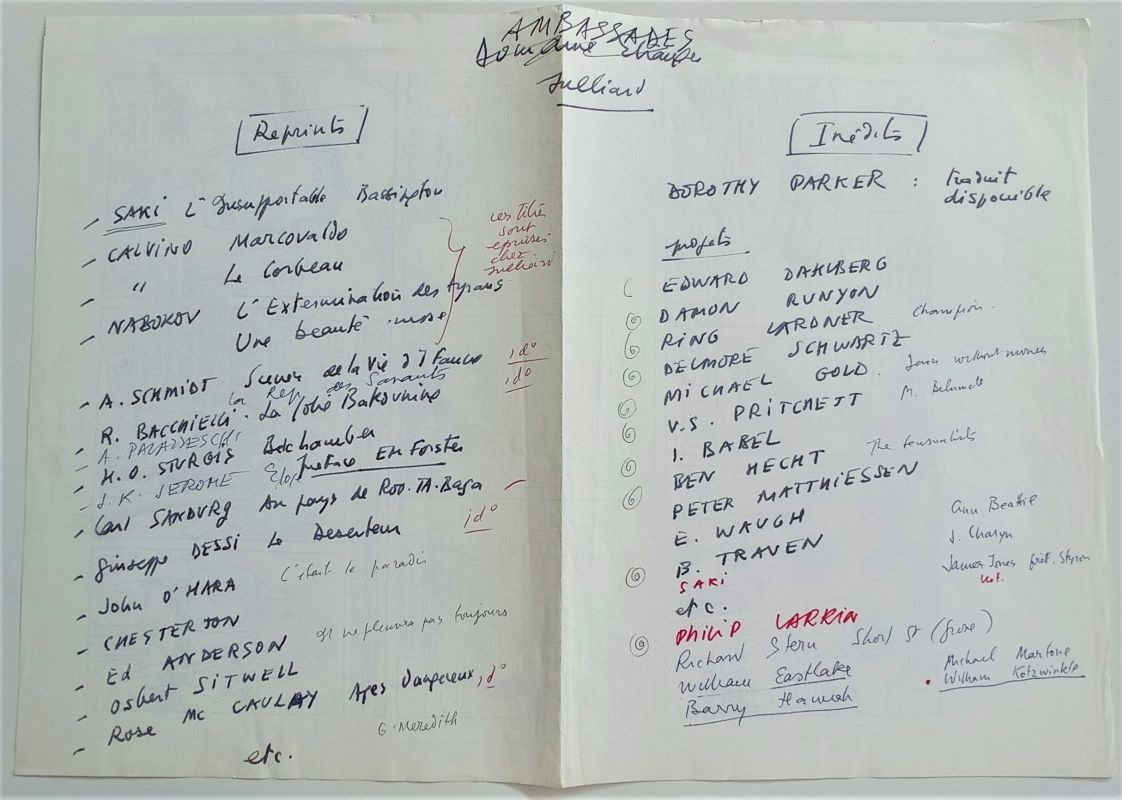 AMBASSADES
Domaine Etranger
Julliard
Reprints
- SAKI L'Insupportable Bassington
- CALVINO Marcovaldo
- " Le Corbeau
- NABOKOV L'Extermination des tyrans
Une beauté russe
ces titres
sont
épuisés
chez
Julliard
- A. SCHMIDT Scènes de la Vie d'1 Faune , id°
la Rep. des Savants , id°
- R. BACCHELLI . La folie Bakounine
- A. PALAZZESCHI
- H. O. STURGIS Belchamber
Preface EM Forster
- J. K. JEROME
- Carl SANDBURG Au pays de Roo. TA. Baga -
- Giuseppe DESSI Le Deserteur id°
- John O'HARA C'était le paradis
- CHESTERTON
- Ed ANDERSON Il ne pleuvra pas toujours
- Osbert SITWELL
- Rose Mc CAULAY Ages dangereux, id°
G. Meredith
etc.
Inédits
DOROTHY PARKER : traduit
disponible
projets
EDWARD DAHLBERG
DAMON RUNYON
RING LARDNER Champion.
DELMORE SCHWARTZ
MICHAEL GOLD . Jews without money
V.S. PRITCHETT M. Beluncle
I. BABEL
BEN HECHT The journalists
PETER MATTHIESSEN
E. WAUGH Ann Beattie
B. TRAVEN J. Charyn
SAKI James Jones préf. Styron
etc.
PHILIP LARKIN
Richard Stern Short St (prose)
William Eastlake Michael Martone
. William Kotzwinkle
Barry Hannah